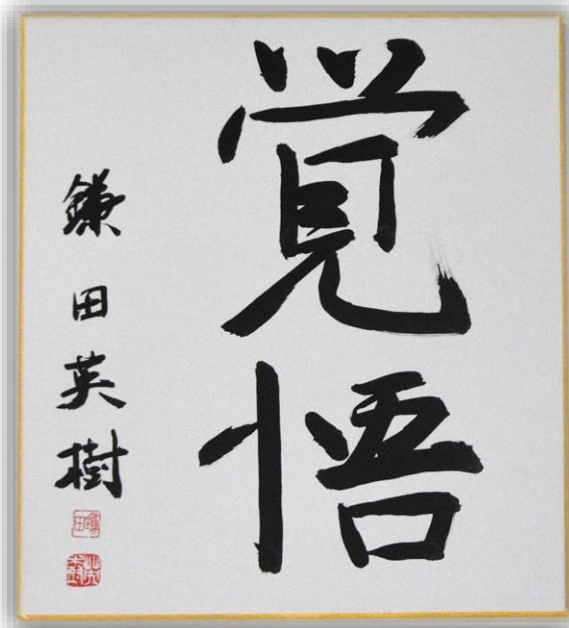 覚悟
鎌田英樹